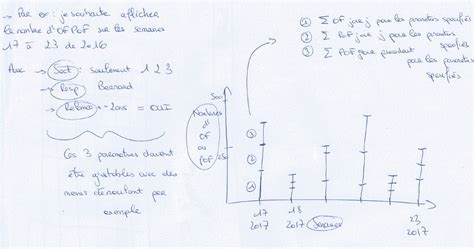 → Par ex : je souhaite afficher
le nombre d'OF POF sur les semaines
17 à 23 de 2016
Avec → Sect : seulement 1 2 3
→ Resp : Bernard
→ Relance +-2ans = OUI
Ces 3 paramètres doivent
être ajustables avec des
menus déroulant par
exemple
① ∑ OF jour j pour les paramètres spécifiés
② ∑ POF jour j pour les paramètres
spécifiés
③ ∑ POF pour pour les paramètres
spécifiés
Nombres
d'
OF
ou
POF
500
250
③
②
①
17
2017
18
2017
Semaines
23
2017